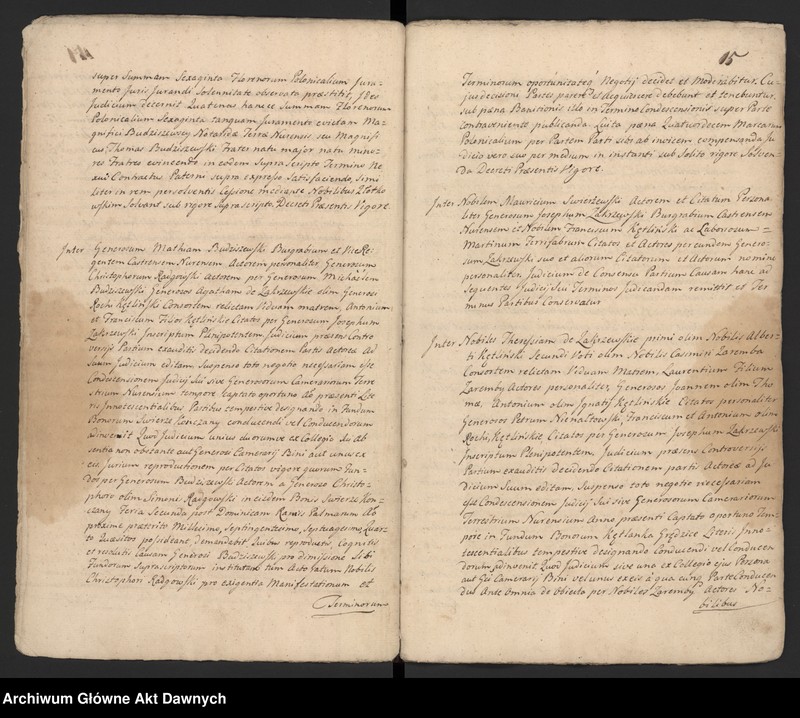 super Summam Sexaginta Florenorum Polonicalium Jura-
mento Juris Jurandi Solennitate observata præstitit, Ideo
Judicium decernit Quatenus hancce Summam Florenorum
Polonicalium Sexaginta tanquam Juramento evictam Ma-
gnifici Budziszewscy Notaridæ Terræ Nurensis seu Magnifi-
cus Thomas Budziszewski Frater natu major natu mino-
res Fratres evincendo in eodem Supra Scripto Termino Ne
Contractus Paterni supra expresso Satisfaciendo, Simi
liter in rem persolventis Cessione mediante Nobilibus Zółtko
wskim Solvant sub rigore Suprascripto. Decreti Præsentis Vigore.
Inter Generosum Mathiam Budziszewski Burgrabium et ViceRe-
gentem Castrensem Nurensem Actorem personaliter Generosum
Christophorum Radgowski Actorem per Generosum Michaelem
Budziszewski Generosos Agatham de Zakrzewskie olim Generosi
Rochi Kętliński Consortem relictam Viduam matrem, Antonium,
et Franciscum Filios Kętlińskie Citatos per Generosum Josephum
Zakrzewski Inscriptum Plenipotentem. Judicium præsens Contro
versijs Partium exauditis decidendo Citationem Partis Actoreæ Ad
Suum Judicium editam, Suspenso toto negotio necessariam esse
Condescensionem Judicij Sui sive Generosorum Camerariorum Terre
strium Nurensium tempore Captato oportuno Ab præsenti Lite
ris Innotescentialibus Partibus tempestive designando in Fundum
Bonorum Swierże Konczany conducendi vel Conducendorum
adinvenit Quod Judicium unius duorumve ex Collegio Sui ab
sentia non obstante aut Generosi Camerarij Bini aut unus ex
eis Jurium reproductionem per Citatos vigore quorum Fun-
dos per Generosum Budziszewski Actorem a Generoso Christo-
phoro olim Simonis Radgowski in eisdem Bonis Swierże Kon-
czany Feria Secunda post Dominicam Ramis Palmarum
proxime præterito Millesimo, Septingentesimo, Septuagesimo Quar
to Quæsitos possideant, demandabit, Quibus reproductis, Cognitis
et resolutis Causam Generosi Budziszewski pro dimissione Sibi
Fundorum Suprascriptorum institutam tum Actoratum Nobilis
Christophori Radgowski pro exigentia Manifestationum et
Terminorum
15
Terminorum oportunitateq Negotij decidet et Moderabitur. Cu-
jus decisioni Partes parere et acquiescere debebunt et tenebuntur.
Sub pæna Bannitionis illo in Termino Condescensionis super Parte
contraveniente publicanda Luita pæna Quatuordecem Marcarum
Polonicalium per Partem Parti sibi ab invicem compensanda Ju
dicio vero suo per medium in instanti sub Solito rigore Solven-
da Decreti Præsentis Vigore.
Inter Nobilem Mauricium Swierżewski Actorem et Citatum Persona
liter Generosum Josephum Zakrzewski Burgrabium Castrensem
Nurensem et Nobilem Franciscum Kętliński ac Laboriosum =
Martinum Terrifabrum Citatos et Actores per eundem Genero-
sum Zakrzewski suo et aliorum Citatorum et Actorum nomine
personaliter. Judicium de Consensu Partium Causam hanc ad
Sequentes Judicij Sui Terminos Judicandam remittit et Ter
minus Partibus Conservatur
Inter Nobiles Theresiam de Zakrzewskie primi olim Nobilis Alber-
ti Kętliński Secundi Voti olim Nobilis Casimiri Zaremba
Consortem relictam Viduam Matrem, Laurentium Filium
Zaremby Actores personaliter, Generosos Joannem olim Tho
mæ, Antonium olim Ignatij Kętlińskie Citatos personaliter
Generosos Petrum Nienałtowski, Franciscum et Antonium olim
Rochi, Kętlińskie, Citatos per Generosum Josephum Zakrzewski
Inscriptum Plenipotentem. Judicium præsens Controversijs
Partium exauditis decidendo Citationem partis Actoreæ ad Ju
dicium Suum editam, Suspenso toto negotio necessariam
esse Condescensionem Judicij Sui sive Generosorum Camerariorum
Terrestrium Nurensium Anno præsenti Captato oportuno Tem
pore in Fundum Bonorum Kętlanka Grędzice Literis Inno-
tescentialibus tempestive designando Conducendi vel Conducen
dorum adinvenit Quod Judicium sive una ex Collegio ejus Persona
aut Gsi Camerarij Bini vel unus ex eis à qua cunq Parte Conducen
dus Ante omnia de Obiecta per Nobiles Zaremby Actores No-
bilibus
Archiwum Główne Akt Dawnych